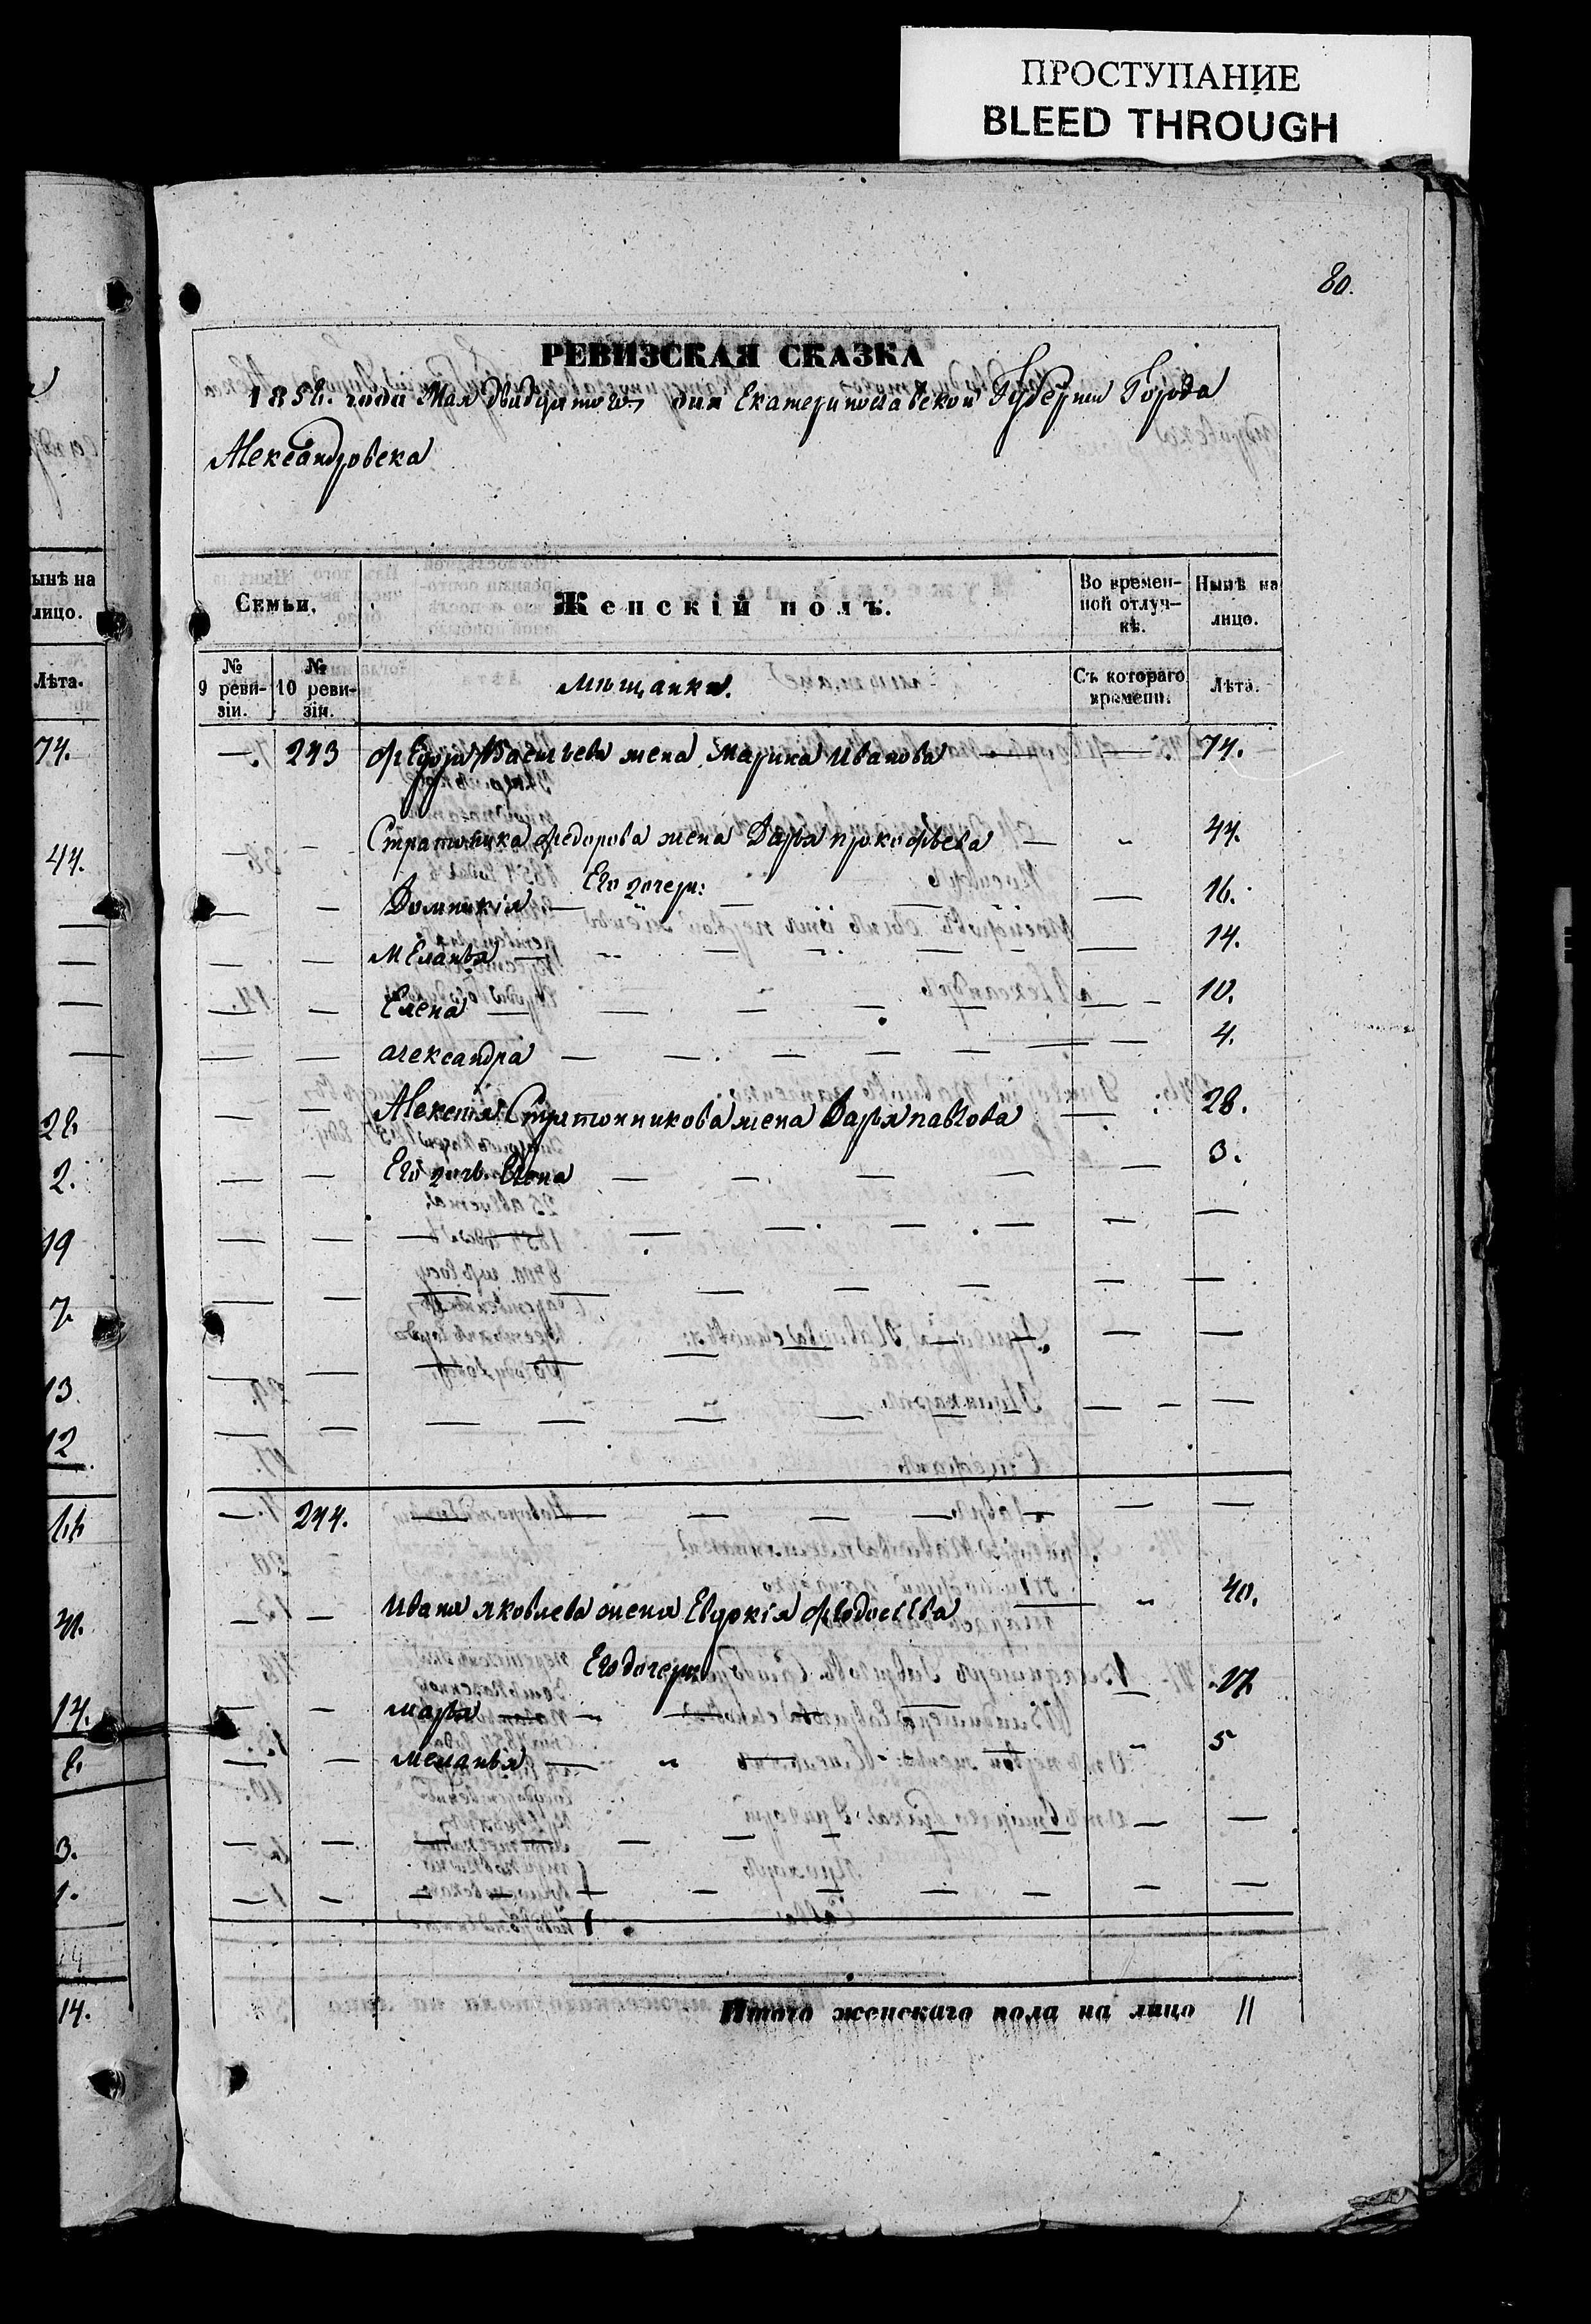 ПРОСТУПАНИЕ
BLEED THROUGH
80.
РЕВИЗСКАЯ СКАЗКА
185 года Мая двадцатого дня Екатеринославской Губернии Города
Александровска
ынѣ на
лицо.
Лѣта.
Семьи.
Женскій полъ.
Во времен-
ной отлуч-
кѣ.
Нынѣ на
лицо.
№
9 реви-
зіи.
№
10 реви-
зіи.
мѣщанки.
Съ котораго
времени.
Лѣта.
74.
— 243 Федора Васильева жена Марина Иванова — — 74.
44.
— — Стратоника федорова жена Дарья прокофьева — 44.
Его дочери:
— — Домникія — — — 16.
— — Меланья — — — 14.
— — Елена — — — 10.
— — александра — — — 4.
— — Алексѣя Стратонникова жена Дарья павлова — 28.
2.
— — Его дочь Елена — — — 3.
19
7.
13.
12
— 244. — — — — —
— — Ивана яковлева жена Евдокія федосѣева — 40.
Его дочери
14.
— — марья — — — 17.
— — меланья — — — 5
3.
1.
14.
Итого женскаго пола на лицо 11